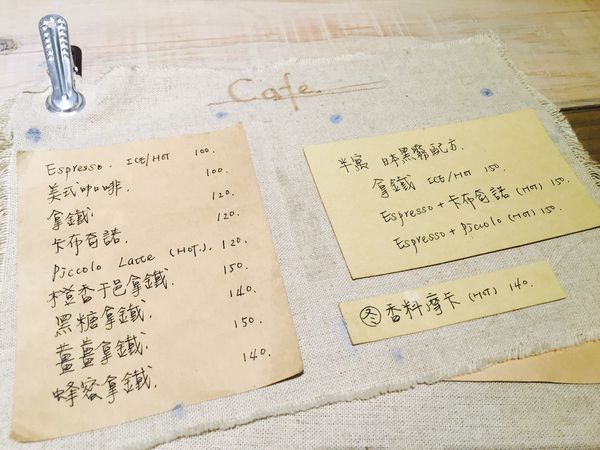 Cafe.
Espresso. ICE/HOT 100.
美式咖啡. 100.
拿鐵. 120.
卡布奇諾. 120.
Piccolo Latte (HOT.). 120.
橙香干邑拿鐵. 150.
黑糖拿鐵. 140.
薑薑拿鐵. 150.
蜂蜜拿鐵. 140.
半寓 日本黑霧配方.
拿鐵 ICE/HOT 150.
Espresso + 卡布奇諾 (HOT) 150.
Espresso + Piccolo (HOT) 150.
冬 香料摩卡 (HOT) 140.